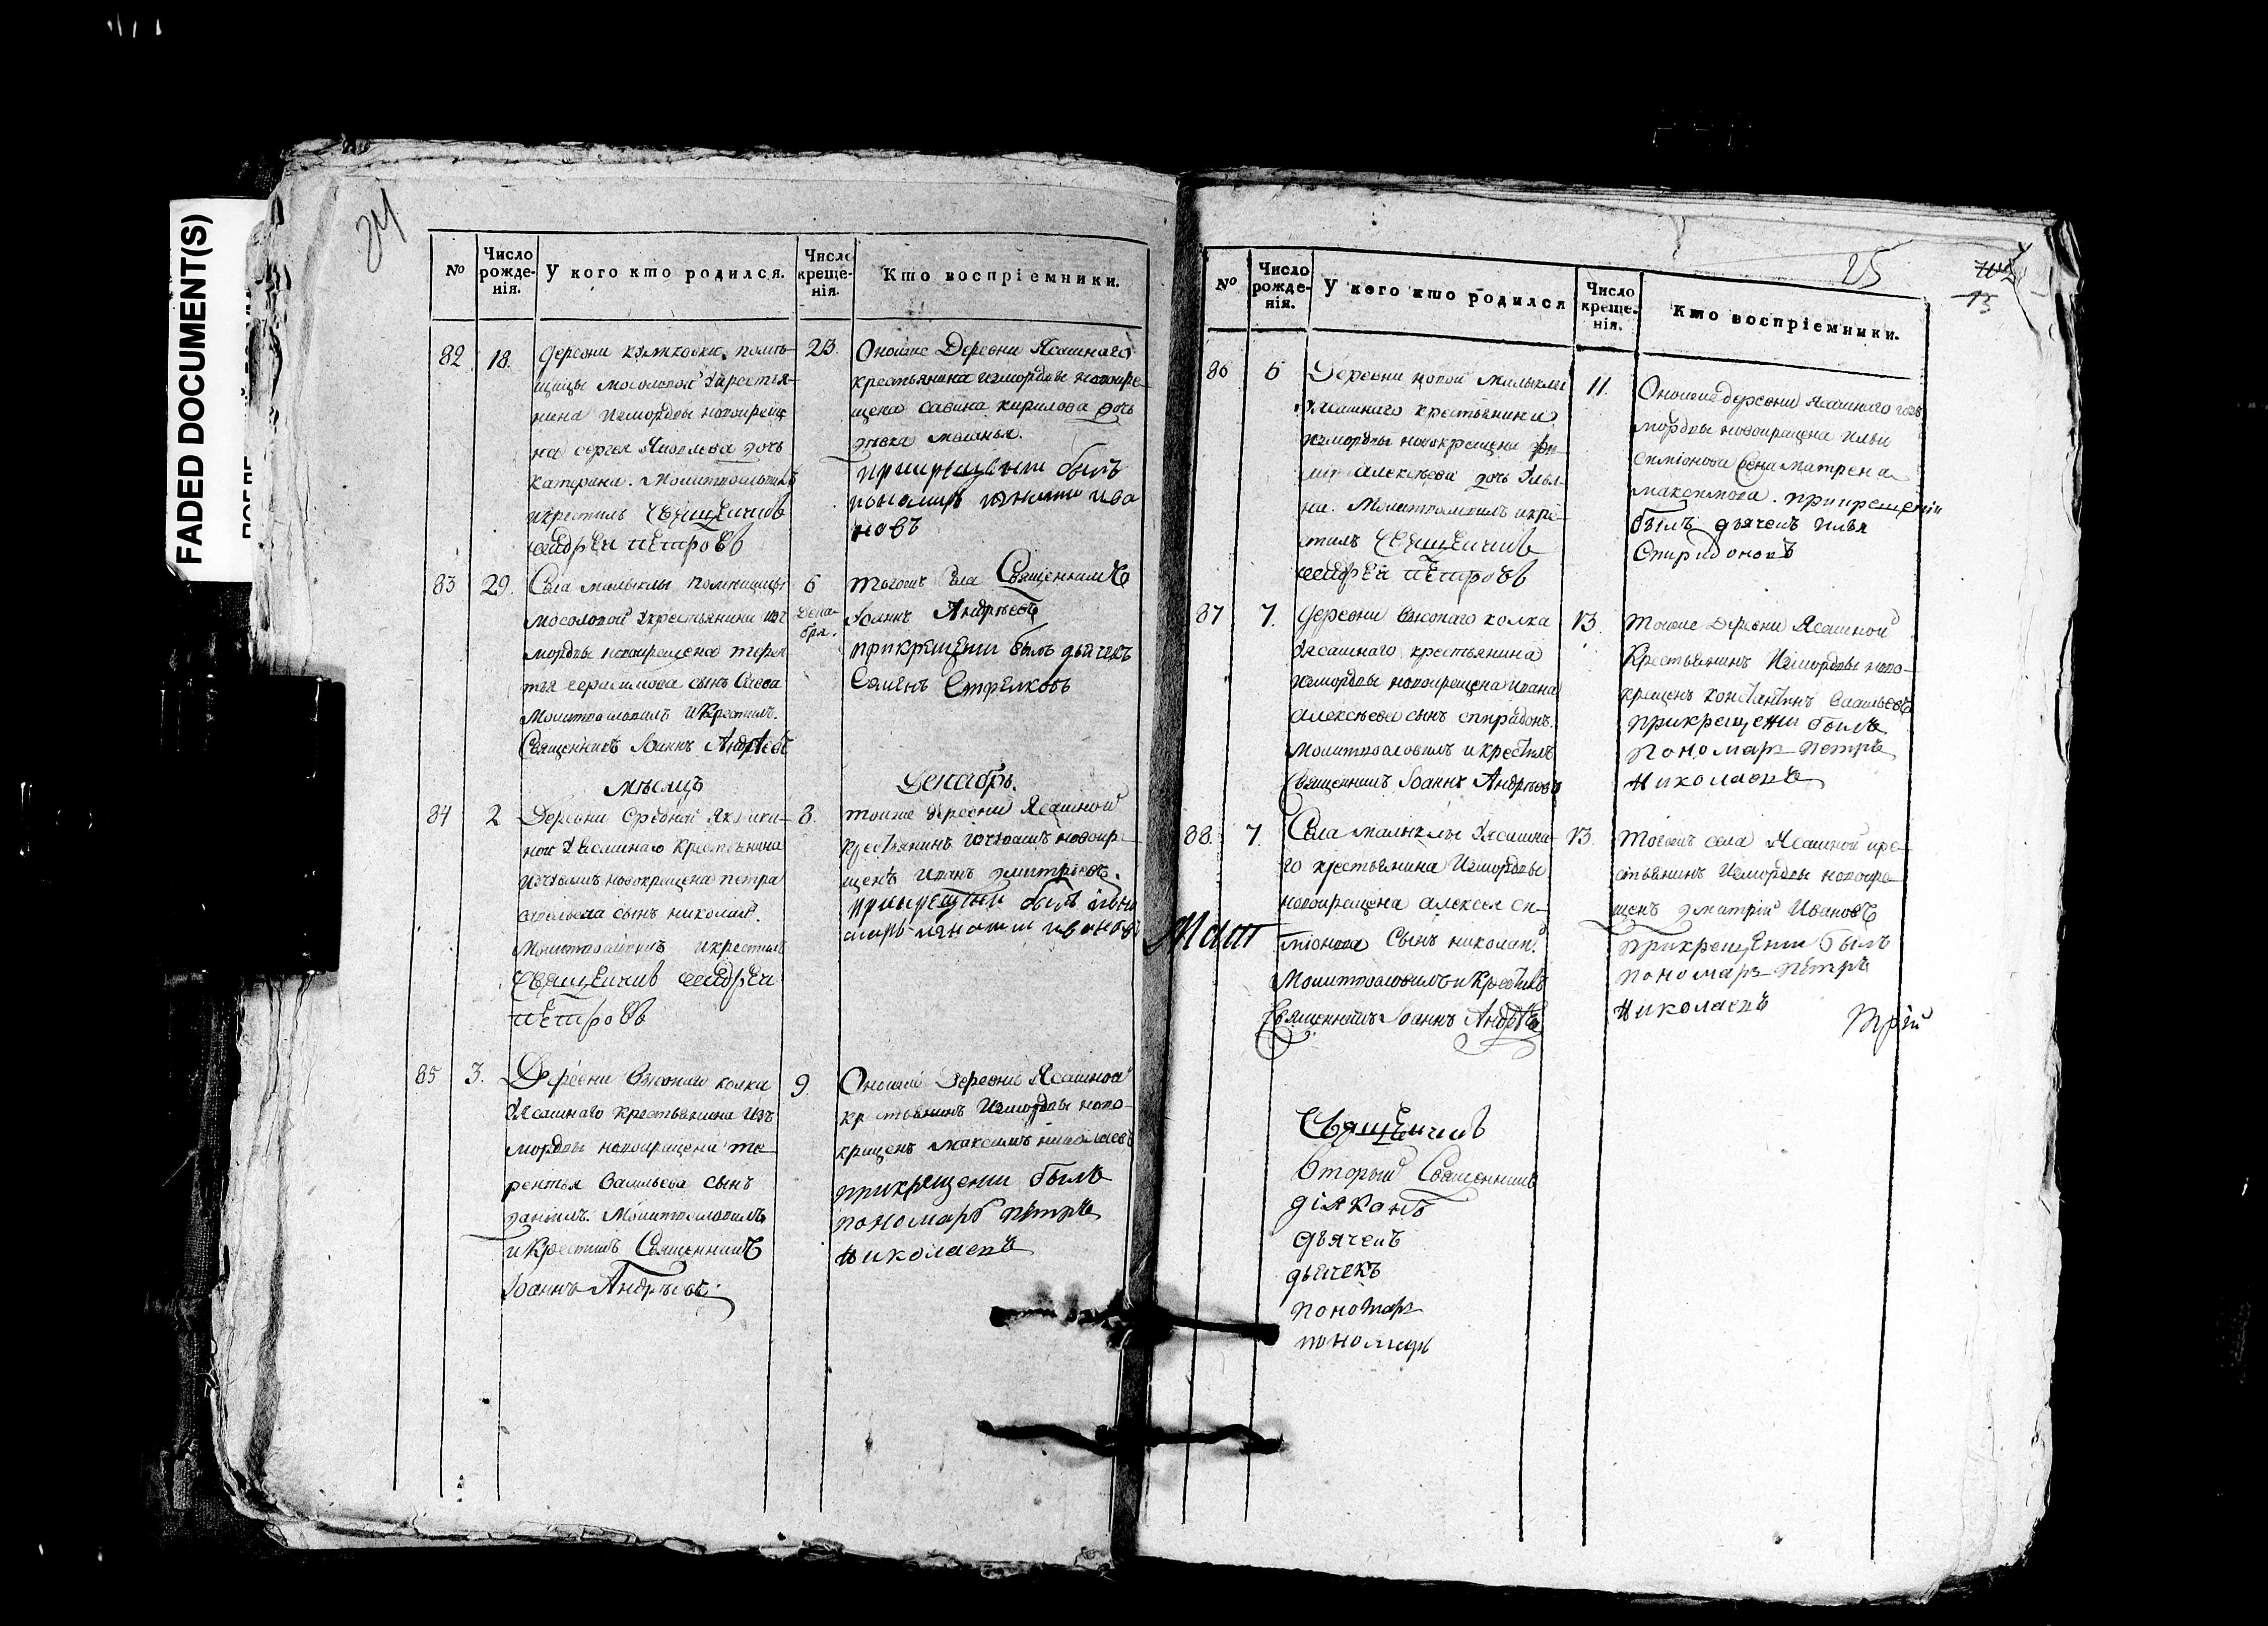 FADED DOCUMENT(S)
24
№
Число рожде-нія.
У кого кто родился.
Число креще-нія.
Кто воспріемники.
82
18.
деревни помѣ-
щицы Мосоловой крестья-
нина измордвы новокреще
на сергея Яковлева дочь
катерина. Молитвовалъ
икрестилъ Священникъ
Андреи Петровъ
23.
Оноиже Деревни Ясашнаго
крестьянина измордвы новокре
щена савина кирилова дочь
девка маланья.
прикрещении былъ
пономарь игнатии ива
новъ
83
29.
Села малыклы помещицы
Мосоловой крестьянина из
мордвы новокрещена терен
тья герасимова сынъ Савва
Молитвовалъ икрестилъ
Священникъ Іоаннъ Андреевъ
6
дека-
бря.
тогожъ Села Священникъ
Іоаннъ Андреевъ
прикрещении былъ дьячекъ
Семенъ Стрелковъ
мѣсяцъ
Декабрь.
84
2
Деревни Средней Якушки-
ной Ясашнаго крестьянина
изчювашъ новокрещена петра
сынъ николай.
Молитвовалъ икрестилъ
Священникъ Андреи
Петровъ
8.
тоиже деревни Ясашной
крестьянинъ изчювашъ новокре
щенъ Иванъ дмитриевъ.
прикрещении былъ поно
марь игнатии ивановъ
85
3.
Деревни Высокаго колка
Ясашнаго крестьянина изъ
мордвы новокрещена те
рентья Васильева сынъ
данилъ. Молитвовалъ
икрестилъ Священникъ
Іоаннъ Андреевъ.
9.
Оноиже Деревни Ясашной
крестьянинъ Измордвы ново-
крещенъ максимъ николаевъ
прикрещении былъ
пономарь петръ
николаевъ
25
13
№
Число рожде-нія.
У кого кто родился
Число креще-нія.
Кто воспріемники.
86
6
Деревни новой малыклы
Ясашнаго крестьянина
измордвы новокрещена
алексѣева дочь Улья-
на. Молитвовалъ икре-
стилъ Священникъ
Андреи Петровъ
11.
Оноижедеревни Ясашнаго изъ
мордвы новокрещена ильи
симіонова жена матрена
максимова. прикрещеніи
былъ дьячекъ илья
Спиридоновъ
87
7.
Деревни Высокаго колка
Ясашнаго крестьянина
измордвы новокрещена ивана
алексѣева сынъ спиридонъ.
Молитвословилъ икрестилъ
Священникъ Іоаннъ Андреевъ
13.
тоиже деревни Ясашной
Крестьянинъ Измордвы ново-
крещенъ константинъ Васильевъ
прикрещении былъ
пономарь петръ
николаевъ
88.
7.
Села малыклы Ясашна-
го крестьянина Измордвы
новокрещена алексея си-
міонова Сынъ николай.
Молитвословилъ икрестилъ
Священникъ Іоаннъ Андреевъ
13.
тогожъ села Ясашной кре-
стьянинъ Измордвы новокре
щенъ дмитрий Ивановъ
прикрещении былъ
пономарь петръ
николаевъ
Священникъ
Второй Священникъ
діяконъ
дьячекъ
дьячекъ
пономарь
пономарь